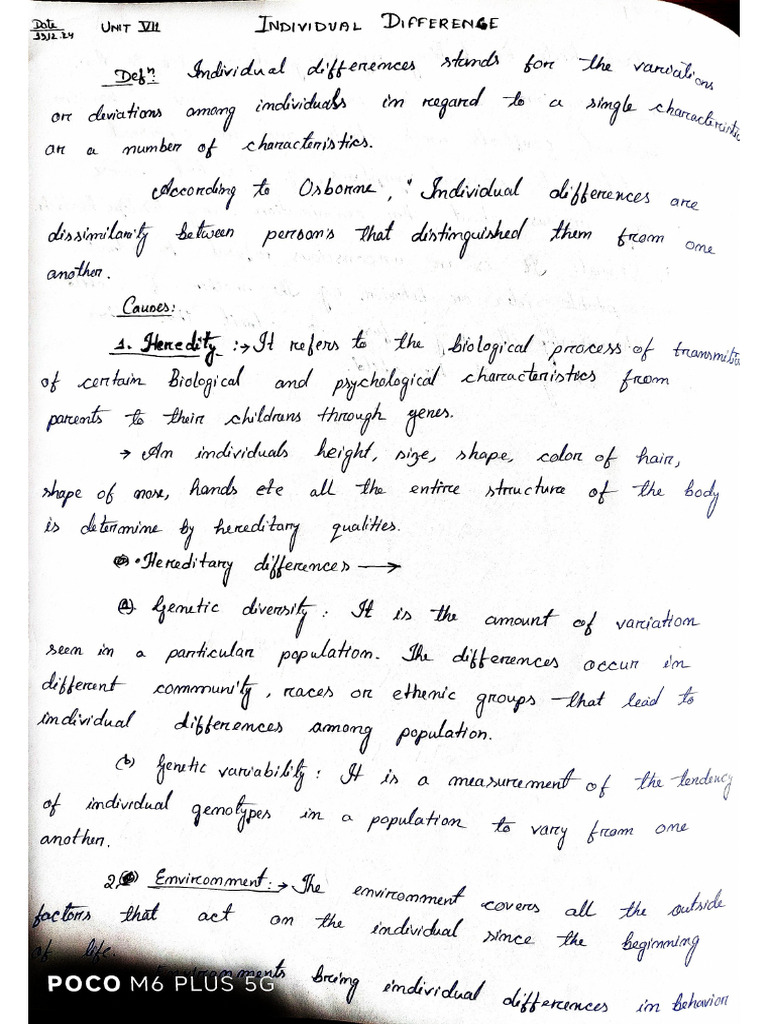 Date
19/2.24
UNIT VII
INDIVIDUAL DIFFERENCE
Defn: Individual differences stands for the variations
or deviations among individuals in regard to a single characteristic
or a number of characteristics.
According to Osborne, "Individual differences are
dissimilarity between person's that distinguished them from one
another.
Causes:
1. Heredity :→ It refers to the biological process of
of certain Biological and psychological characteristics from
parents to their childrens through genes.
→ An individuals height, size, shape, color of hair,
shape of nose, hands etc all the entire structure of the body
is determine by hereditary qualities.
• Hereditary differences →
(a) Genetic diversity : It is the amount of variation
seen in a particular population. The differences occur in
different community, races or ethenic groups that lead to
individual differences among population.
(b) Genetic variability : It is a measurement of the tendency
of individual genotypes in a population to vary from one
another.
2. Environment :→ The environment covers all the outside
factors that act on the individual since the beginning
of life.
bring individual differences in behavior
POCO M6 PLUS 5G